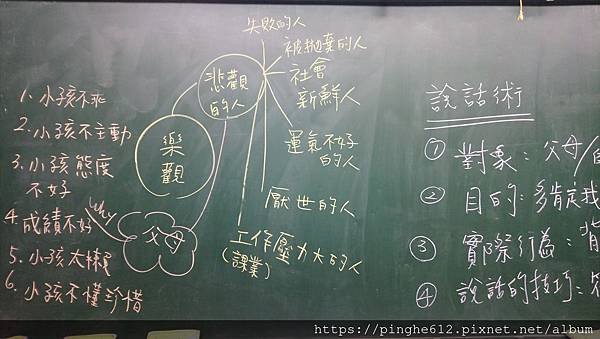 1. 小孩不乖
2. 小孩不主動
3. 小孩態度
不好
4. 成績不好
5. 小孩太
6. 小孩不懂珍惜
Why
父母
樂
觀
悲觀
的人
失敗的人
被拋棄的人
社會
新鮮人
運氣不好
的人
厭世的人
工作壓力大的人
(課業)
說話術
① 對象：父母/
② 目的：多肯定我
③ 實際行為：
④ 說話的技巧：
https://pinghe612.pixnet.net/album